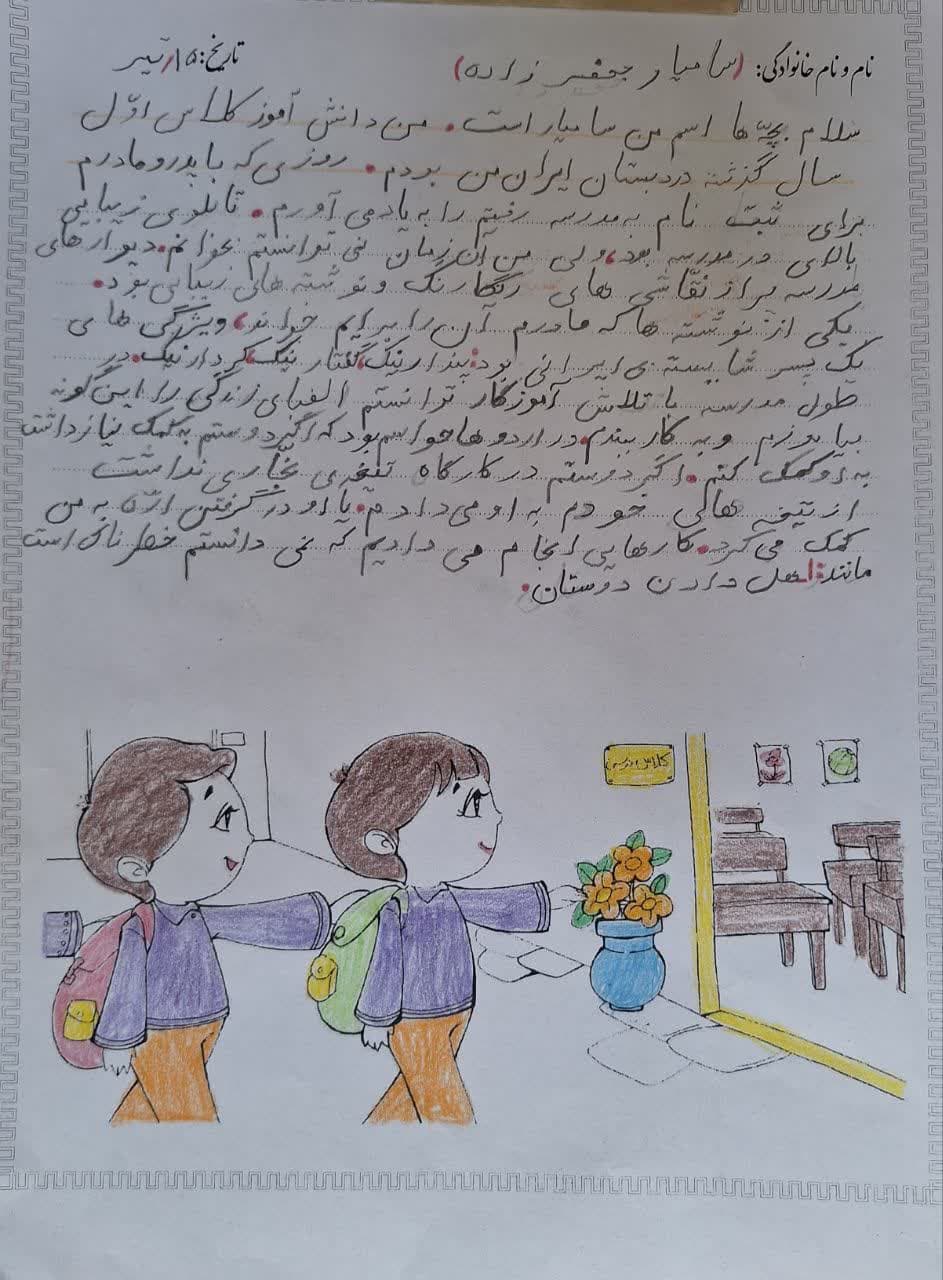 نام و نام خانوادگی: (سامیار جعفر زاده) تاریخ: ۱۵/تیر
سلام بچّه ها اسم من سامیار است. من دانش آموز کلاس اوّل
سال گذشته در دبستان ایران من بودم. روزی که با پدر و مادرم
برای ثبت نام به مدرسه رفتیم را به یاد می آورم. تابلوی زیبایی
بالای در مدرسه بود، ولی من آن زمان نمی توانستم بخوانم. دیوارهای
مدرسه پر از نقّاشی های رنگارنگ و نوشته های زیبایی بود.
یکی از نوشته ها که مادرم آن را برایم خواند، ویژگی های
یک پسر شایسته ی ایرانی بود: پندار نیک، گفتار نیک، کردار نیک. در
طول مدرسه با تلاش آموزگار توانستم الفبای زندگی را این گونه
بیاموزم و به کار ببندم. در اردو ها حواسم بود که اگر دوستم به کمک نیاز داشت
به او کمک کنم. اگر دوستم در کارگاه نجّاری نداشت
از های خودم به او می دادم. یا او در گرفتن ارّه به من
کمک می کرد. کارهایی انجام می دادیم که نمی دانستم خطرناک است
مانند: هل دادن دوستان.
کلاس